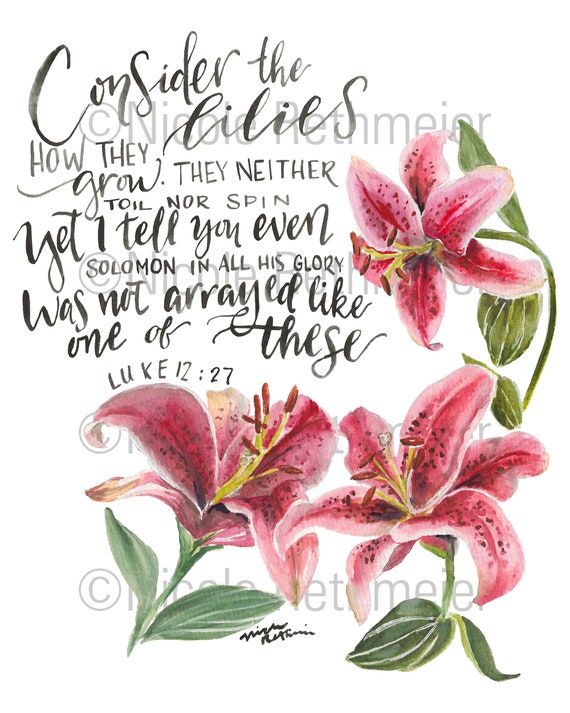 Consider the
lilies
HOW THEY
grow. THEY NEITHER
TOIL NOR SPIN
Yet I tell you even
SOLOMON IN ALL HIS GLORY
was not arrayed like
one of these
LUKE 12:27
©Nicole Rethmeier
©Nicole Rethmeier
©Nicole Rethmeier
©Nicole Rethmeier